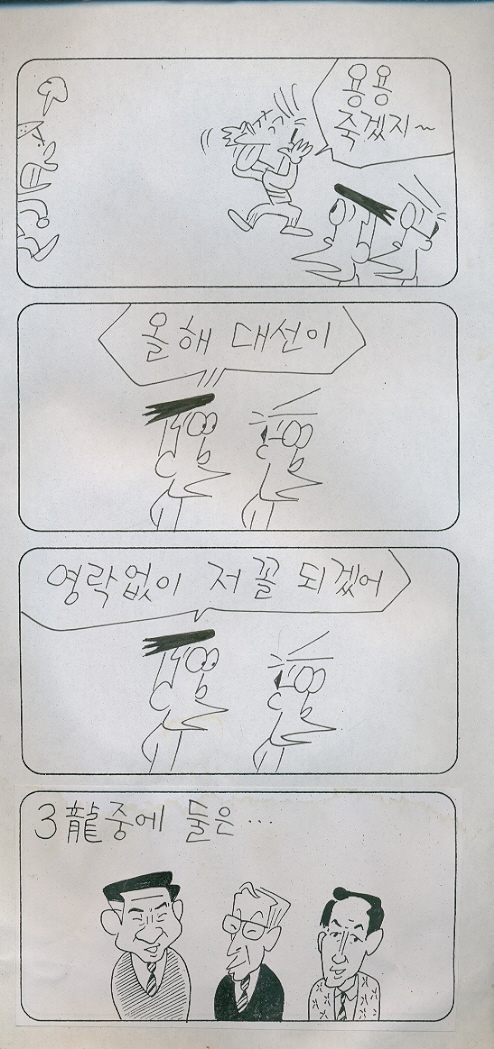 용용
죽겠지~
올해 대선이
영락없이 저꼴 되겠어
3龍중에 둘은…